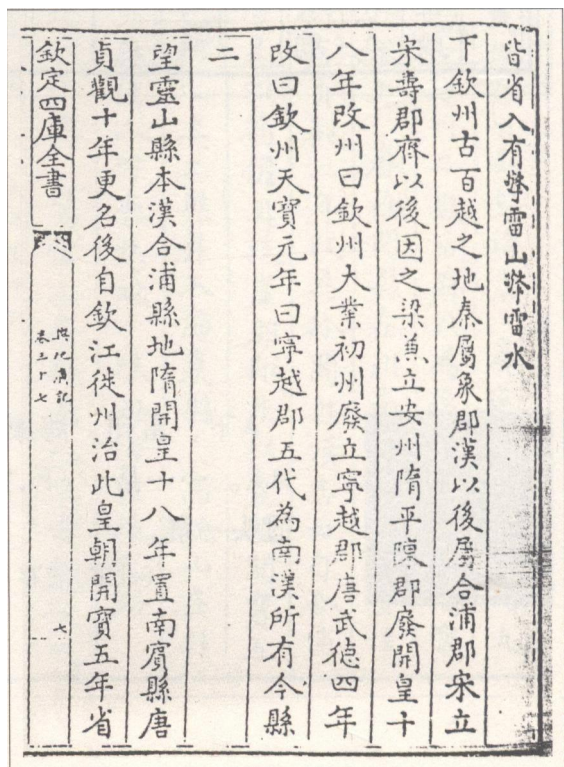 皆省入有擎雷山擎雷水
下欽州古百越之地秦屬象郡漢以後屬合浦郡宋立
宋壽郡齊以後因之梁兼立安州隋平陳郡廢開皇十
八年改州曰欽州大業初州廢立寧越郡唐武德四年
改曰欽州天寶元年曰寧越郡五代為南漢所有今縣
二
望靈山縣本漢合浦縣地隋開皇十八年置南賓縣唐
貞觀十年更名後自欽江徙州治此皇朝開寶五年省
欽定四庫全書
輿地廣記
卷三十七
七